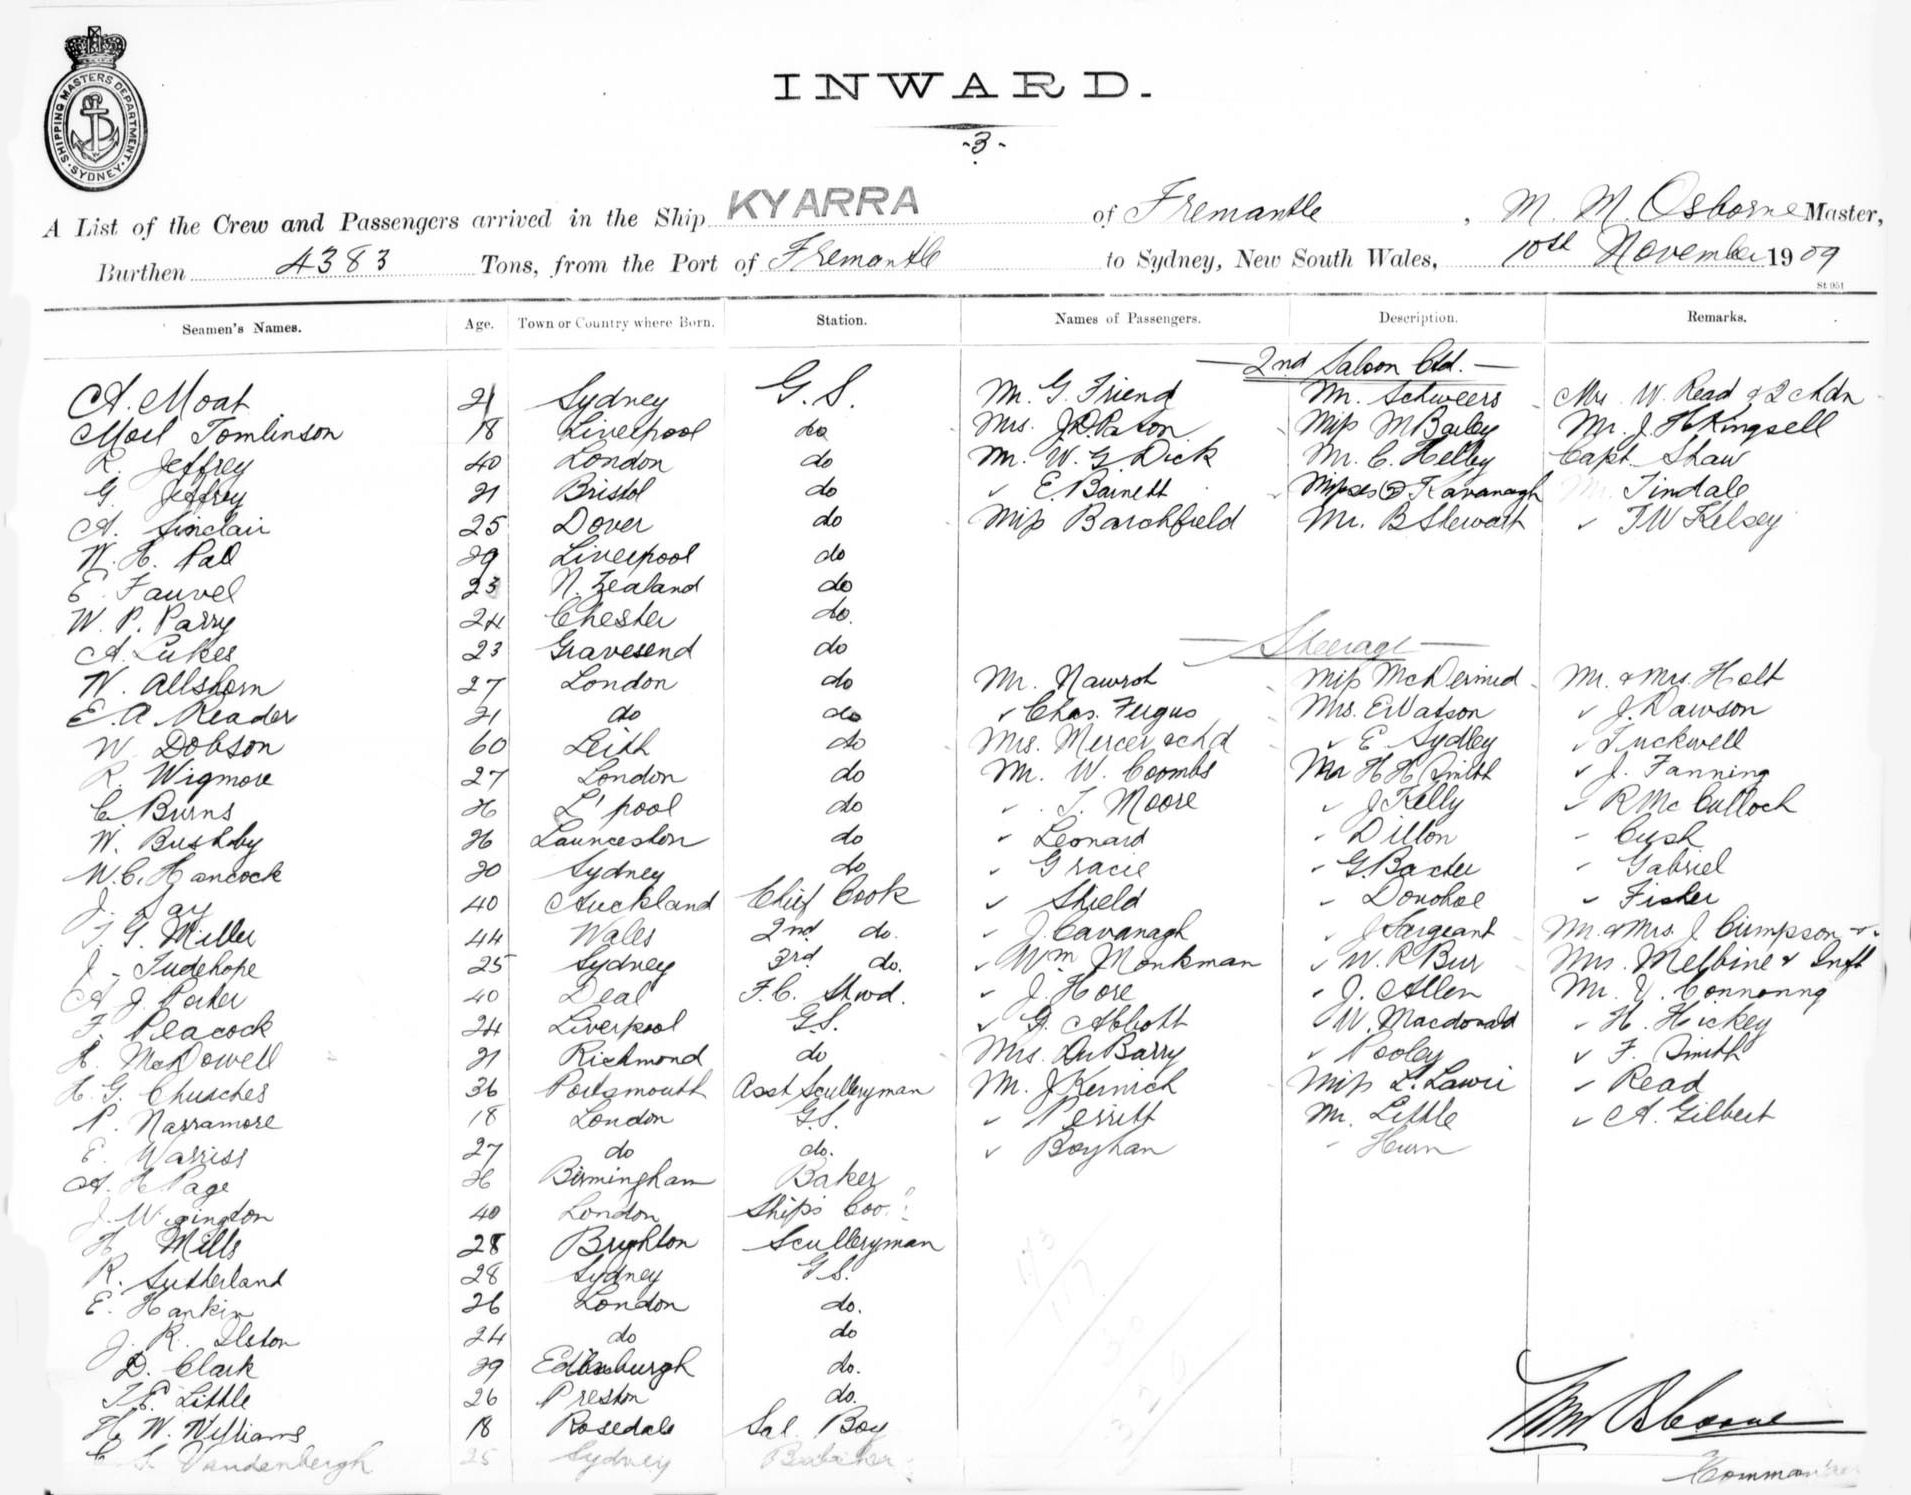 SHIPPING MASTERS DEPARTMENT. SYDNEY.
INWARD.
-3-
A List of the Crew and Passengers arrived in the Ship KYARRA of Fremantle, M. M. Osborne Master,
Burthen 4383 Tons, from the Port of Fremantle to Sydney, New South Wales, 10th November 1909
St 951
Seamen's Names. Age. Town or Country where Born. Station. Names of Passengers. Description. Remarks.
2nd Saloon Ctd.
A. Moat 21 Sydney G.S. Mr. G. Friend Mr. Schweers Mrs W. Read & 2 Chdn
Tomlinson 18 Liverpool do Mrs. J.D. Paton Miss M Bailey Mr. J. H Kingsell
R. Jeffrey 40 London do Mr. W. G. Dick Mr. C. Helley Capt Shaw
G. Jeffrey 21 Bristol do ✓ E. Barnett Misses (2) Kavanagh Mr. Tindale
A. Sinclair 25 Dover do Miss Barchfield Mr. B Stewart ✓ T W Kelsey
W. H. Pall 29 Liverpool do
E. Fauvel 23 N. Zealand do
W. P. Parry 24 Chester do.
A. Lukes 23 Gravesend do
Steerage
W. Allshorn 27 London do Mr. Nawrot Miss McDermid Mr. & Mrs. Holt
E. A. Reader 21 do do ✓ Chas. Fergus Mrs. E Watson ✓ J. Dawson
W. Dobson 60 Leith do Mrs. Mercer & chd ✓ E Sydley ✓ Tuckwell
R. Wigmore 27 London do Mr. W. Coombs Mr H H Smith ✓ J. Fanning
C Burns 26 L'pool do ✓ T. Moore ✓ J Kelly ✓ R Mc Culloch
W. Bushby 26 Launceston do ✓ Leonard ✓ Dillon ✓ Cush
W. C. Hancock 20 Sydney do ✓ Gracie ✓ G. Baxter ✓ Gabriel
J. Day 40 Auckland Chief Cook ✓ Shield ✓ Donohoe ✓ Fisher
T. G. Miller 44 Wales 2nd do. ✓ J. Cavanagh ✓ J Sargeant Mr. & Mrs. J Cumpson &
J. Tudehope 25 Sydney 3rd do. ✓ Wm Monkman ✓ W. R Bur Mrs. Melbine & Inft
A J. Porter 40 Deal F.C. Stwd. ✓ J. Hore ✓ J. Allen Mr.
F. Peacock 24 Liverpool G.S. ✓ G. Abbott ✓ W. Macdonald ✓ H. Hickey
H. McDowell 21 Richmond do Mrs. Du Barry ✓ Pooley ✓ F. Smith
H. G. Churches 36 Portsmouth Asst Sculleryman Mr. J Kernich Miss L. Lawri ✓ Read
P. Narramore 18 London G.S. ✓ Perritt Mr. Little ✓ A. Gilbert
E. Warriss 27 do do. ✓ Boyhan ✓ Hurn
A. H Page 26 Birmingham Baker
J. 40 London Ships Coo
H Mills 28 Brighton Sculleryman
R. Sutherland 28 Sydney G S.
E. Hankin 26 London do.
J. R. Ilston 24 do do
D. Clark 29 Edinburgh do.
T. E. Little 26 Preston do.
H. W. Williams 18 Rosedale Sal Boy
C S. Vandenbergh 25 Sydney
Mm Osborne
Commander